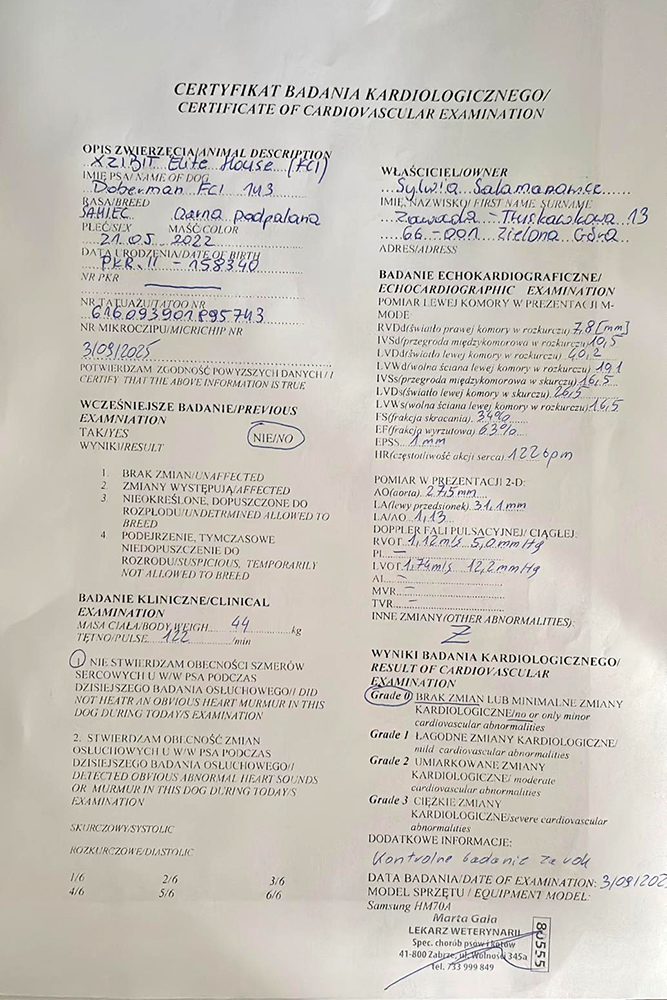 CERTYFIKAT BADANIA KARDIOLOGICZNEGO/
CERTIFICATE OF CARDIOVASCULAR EXAMINATION
OPIS ZWIERZĘCIA/ANIMAL DESCRIPTION
XZIBIT Elite House (FCI)
IMIĘ PSA/NAME OF DOG
Doberman FCI 143
RASA/BREED
SAMIEC Czarna podpalana
PŁEĆ/SEX MAŚĆ/COLOR
21.05.2022
DATA URODZENIA/DATE OF BIRTH
PKR.II - 158340
NR PKR
NR TATUAŻU/TATOO NR
616093901895743
NR MIKROCZIPU/MICRICHIP NR
3/09/2025
POTWIERDZAM ZGODNOŚĆ POWYŻSZYCH DANYCH / I
CERTIFY THAT THE ABOVE INFORMATION IS TRUE
WCZEŚNIEJSZE BADANIE/PREVIOUS
EXAMNIATION
TAK/YES NIE/NO
WYNIKI/RESULT
1. BRAK ZMIAN/UNAFFECTED
2. ZMIANY WYSTĘPUJĄ/AFFECTED
3. NIEOKREŚLONE, DOPUSZCZONE DO
ROZPŁODU/UNDETRMINED ALLOWED TO
BREED
4. PODEJRZENIE, TYMCZASOWE
NIEDOPUSZCZENIE DO
ROZRODU/SUSPICIOUS, TEMPORARILY
NOT ALLOWED TO BREED
BADANIE KLINICZNE/CLINICAL
EXAMINATION
MASA CIAŁA/BODY WEIGH 44 kg
TĘTNO/PULSE 122 /min
1 NIE STWIERDZAM OBECNOŚCI SZMERÓW
SERCOWYCH U W/W PSA PODCZAS
DZISIEJSZEGO BADANIA OSŁUCHOWEGO/I DID
NOT HEATR AN OBVIOUS HEART MURMUR IN THIS
DOG DURING TODAY/S EXAMINATION
2. STWIERDZAM OBECNOŚĆ ZMIAN
OSŁUCHOWYCH U W/W PSA PODCZAS
DZISIEJSZEGO BADANIA OSŁUCHOWEGO/I
DETECTED OBVIOUS ABNORMAL HEART SOUNDS
OR MURMUR IN THIS DOG DURING TODAY/S
EXAMINATION
SKURCZOWY/SYSTOLIC
ROZKURCZOWE/DIASTOLIC
1/6 2/6 3/6
4/6 5/6 6/6
WŁAŚCICIEL/OWNER
Sylwia
IMIĘ, NAZWISKO/ FIRST NAME, SURNAME
Zawada - 13
66-001 Zielona Góra
ADRES/ADRESS
BADANIE ECHOKARDIOGRAFICZNE/
ECHOCARDIOGRAPHIC EXAMINATION
POMIAR LEWEJ KOMORY W PREZENTACJI M-
MODE:
RVDd(światło prawej komory w rozkurczu) 7,8 [mm]
IVSd(przegroda międzykomorowa w rozkurczu) 10,5
LVDd(światło lewej komory w rozkurczu) 40,2
LVWd(wolna ściana lewej komory w rozkurczu)
IVSs(przegroda międzykomorowa w skurczu) 16,5
LVDs(światło lewej komory w skurczu) 26,5
LVWs(wolna ściana lewej komory w rozkurczu) 16,5
FS(frakcja skracania) 34%
EF(frakcja wyrzutowa) 63%
EPSS 1 mm
HR(częstotliwość akcji serca) 122 bpm
POMIAR W PREZENTACJI 2-D:
AO(aorta) 27,5 mm
LA(lewy przedsionek) 31,1 mm
LA/AO 1,13
DOPPLER FALI PULSACYJNEJ/ CIĄGŁEJ:
RVOT 1,12 m/s 5,0 mmHg
PI -
LVOT 1,74 m/s 12,2 mmHg
AI -
MVR -
TVR -
INNE ZMIANY(OTHER ABNORMALITIES):
Z
WYNIKI BADANIA KARDIOLOGICZNEGO/
RESULT OF CARDIOVASCULAR
EXAMINATION
Grade 0 BRAK ZMIAN LUB MINIMALNE ZMIANY
KARDIOLOGICZNE/no or only minor
cardiovascular abnormalities
Grade 1 ŁAGODNE ZMIANY KARDIOLOGICZNE/
mild cardiovascular abnormalities
Grade 2 UMIARKOWANE ZMIANY
KARDIOLOGICZNE/ moderate
cardiovascular abnormalities
Grade 3 CIĘŻKIE ZMIANY
KARDIOLOGICZNE/severe cardiovascular
abnormalities
DODATKOWE INFORMACJE:
Kontrolne badanie za rok
DATA BADANIA/DATE OF EXAMINATION: 3/09/202
MODEL SPRZĘTU / EQUIPMENT MODEL:
Samsung HM70A
Marta Gala
LEKARZ WETERYNARII
Spec. chorób psów i kotów
41-800 Zabrze, ul. Wolności 345a
tel. 733 999 849
80555